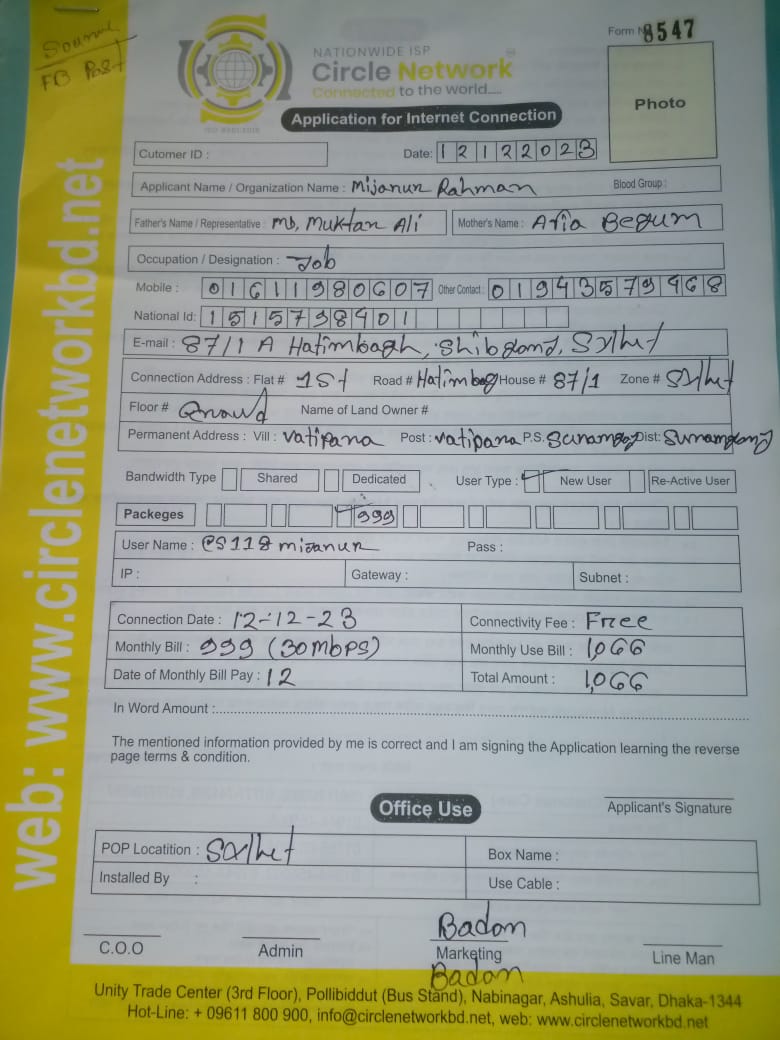 Source
FB Post
Form No 8547
NATIONWIDE ISP
Circle Network
Connected to the world.....
Application for Internet Connection
Photo
Cutomer ID :
Date: 12122023
Applicant Name / Organization Name : Mijanur Rahman Blood Group :
Father's Name / Representative : Md, Muktar Ali Mother's Name : Begum
Occupation / Designation : Job
Mobile : 01611980607 Other Contact : 01943579468
National Id: 1515798401
E-mail : 87/1 A Hatimbagh, Shibgonj, Sylhet
Connection Address : Flat # 1St Road # Hatimbag House # 87/1 Zone # Sylhet
Floor # Name of Land Owner #
Permanent Address : Vill : Vatipara Post : Vatipara P.S. Dist: Sunamgonj
Bandwidth Type Shared Dedicated User Type : New User Re-Active User
Packeges 999
User Name : mijanur Pass :
IP : Gateway : Subnet :
Connection Date : 12-12-23 Connectivity Fee : Free
Monthly Bill : 999 (30mbps) Monthly Use Bill : 1,066
Date of Monthly Bill Pay : 12 Total Amount : 1,066
In Word Amount :
The mentioned information provided by me is correct and I am signing the Application learning the reverse
page terms & condition.
Applicant's Signature
Office Use
POP Locatition : Sylhet Box Name :
Installed By : Use Cable :
Badon
C.O.O Admin Marketing Line Man
Badon
Unity Trade Center (3rd Floor), Pollibiddut (Bus Stand), Nabinagar, Ashulia, Savar, Dhaka-1344
Hot-Line: + 09611 800 900, info@circlenetworkbd.net, web: www.circlenetworkbd.net
web: www.circlenetworkbd.net